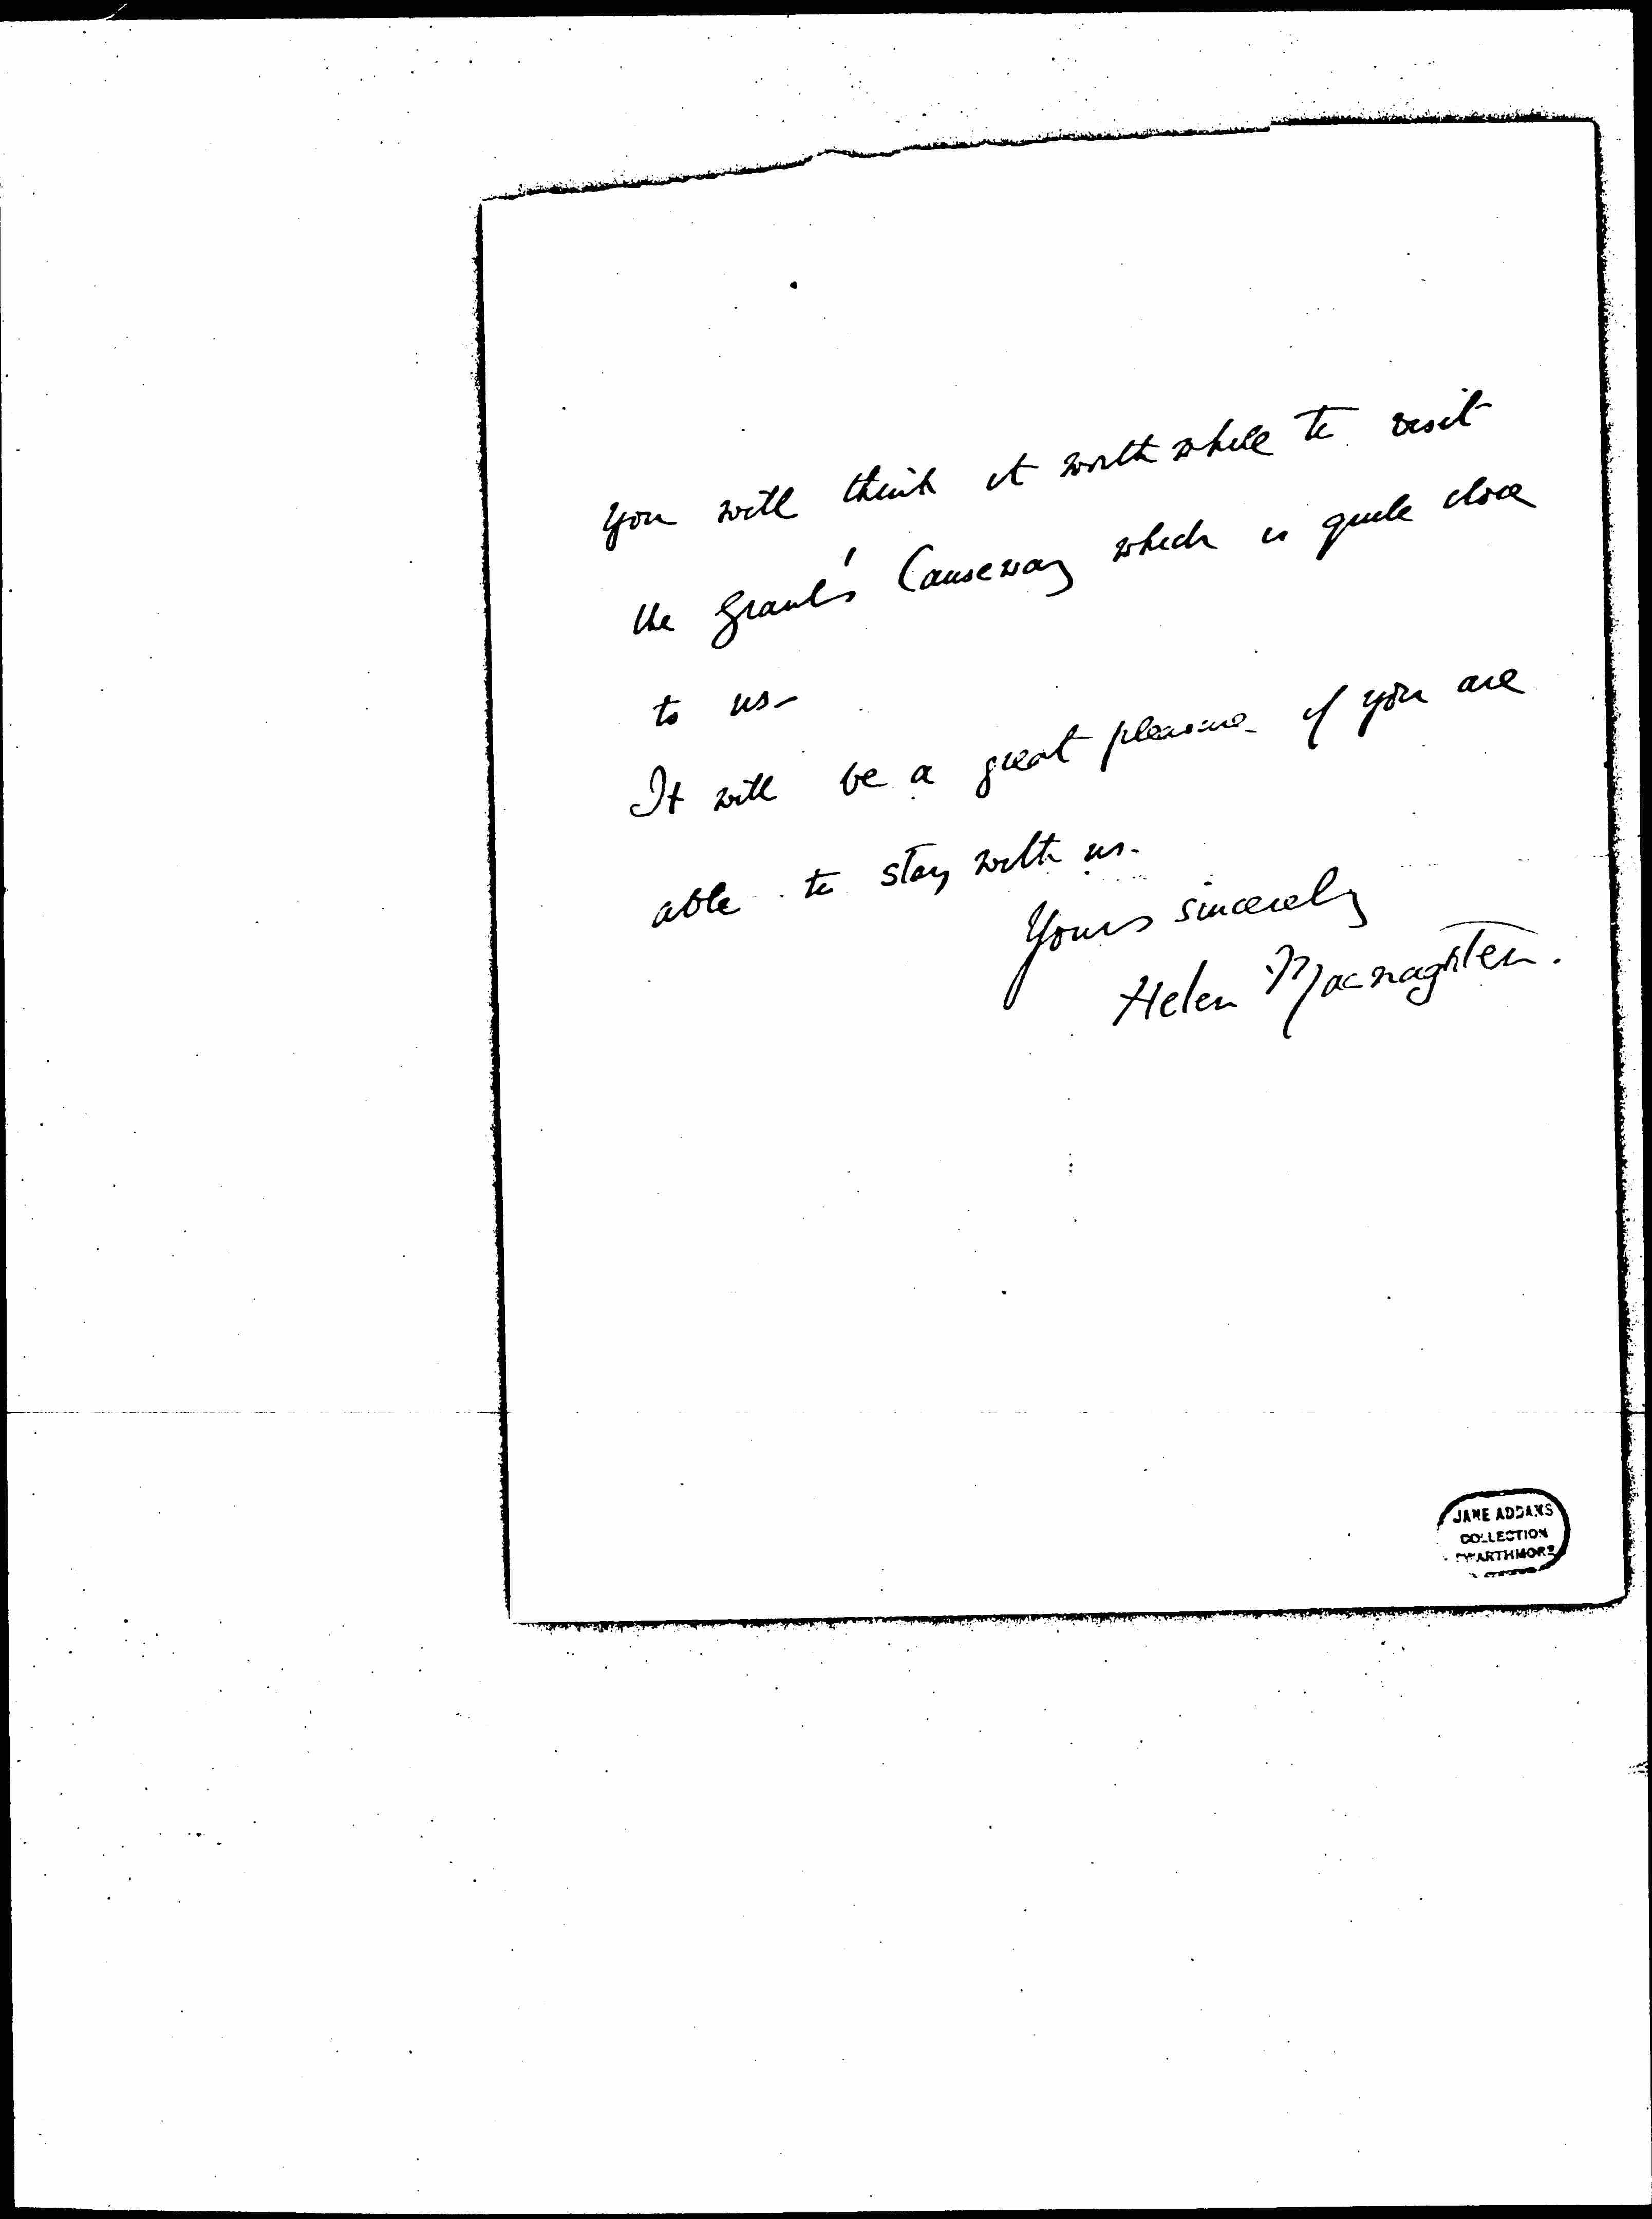 you will think it worth while to visit
the Giant's Causeway which is quite close
to us-
It will be a great pleasure if you are
able to stay with us.
Yours sincerely
Helen Macnaghten.
JANE ADDAMS
COLLECTION
SWARTHMORE